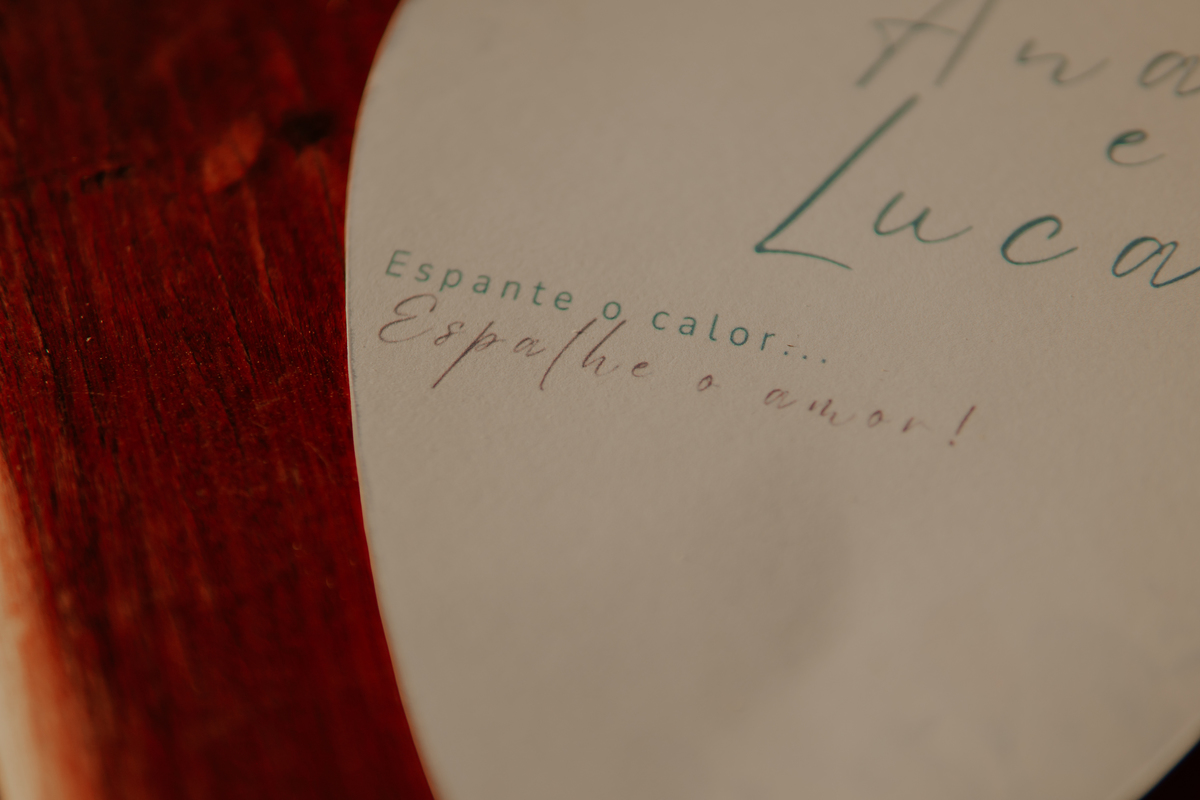 Ana
e
Luca
Espante o calor...
Espalhe o amor!